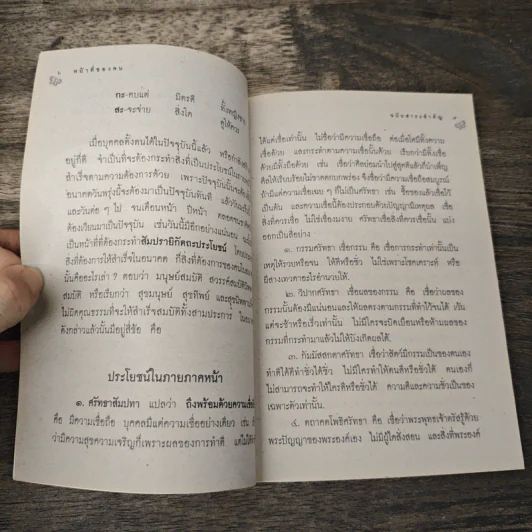 ๖ หน้าที่ของคน
กะ-คบแค่ มิตรดี
สะ-จะจ่าย สิ่งใด
เมื่อบุคคลทั้งคนได้ในปัจจุบันนี้แล้ว หรือกำลัง
อยู่ก็ดี จำเป็นที่จะต้องกระทำสิ่งที่เป็นประโยชน์ใน
สำเร็จตามความต้องการด้วย เพราะปัจจุบันนั้นจะต้อง
อนาคตวันพรุ่งนี้จะต้องมาเป็นปัจจุบันทันที แล้ววัน
และวันต่อ ๆ ไป จนเดือนหน้า ปีหน้า ตลอดจน
ต้องเวียนมาเป็นปัจจุบัน เช่นวันนี้มีอีกอย่างแน่นอน
เป็นหน้าที่ที่ต้องกระทำสัมปรายิกัตถะประโยชน์
สิ่งที่ต้องการให้สำเร็จในอนาคต ก็สิ่งที่ต้องการของคน
นั้นคืออะไรเล่า ? ตอบว่า มนุษย์สมบัติ สวรรค์สมบัติ
สมบัติ หรือเรียกว่า สุขมนุษย์ สุขทิพย์ และสุขนิพพาน
ไม่มีคุณธรรมที่จะให้สำเร็จสมบัติทั้งสามประการ
ดังกล่าวแล้วนั้นมีอยู่สี่ข้อ คือ
ประโยชน์ในภายภาคหน้า
๑. ศรัทธาสัมปทา แปลว่า ถึงพร้อมด้วยความเชื่อ
คือ มีความเชื่อถือ บุคคลมีแต่ความเชื่ออย่างเดียว เช่น
ว่ามีความสุขความเจริญก็เพราะผลของการทำดี แต่ไม่
ฉบับสาระสำคัญ ๗
ได้แต่เชื่อเท่านั้น ไม่ชื่อว่ามีความเชื่อถือ ต่อเมื่อใดมีทั้งความ
เชื่อด้วย และกระทำตามความเชื่อนั้นด้วย เรียกว่ามีทั้งเชื่อ
ด้วยมีทั้งถือด้วย เช่น เชื่อว่าศีลย่อมนำไปสู่สุคติแล้วก็บำเพ็ญ
ศีลให้เรียบร้อยไม่ขาดตกบกพร่อง จึงชื่อว่ามีความเชื่อถือสมบูรณ์
ถ้ามีแต่ความเชื่อเฉย ๆ ก็ไม่เป็นศรัทธา เช่น ซื้อของแล้วเชื่อไว้
เป็นต้น และความเชื่อนี้ต้องประกอบด้วยปัญญามีเหตุผล เชื่อ
สิ่งที่ควรเชื่อ ไม่ใช่เชื่องมงาย ศรัทธาเชื่อสิ่งที่ควรเชื่อนั้น แบ่ง
ออกเป็นสี่อย่าง
๑. กรรมศรัทธา เชื่อกรรม คือ เชื่อการกระทำเท่านั้นเป็น
เหตุให้รวยหรือจน ให้ดีหรือชั่ว ไม่ใช่เพราะโชคเคราะห์ หรือ
ผีสางเทวดาอะไรอำนวยให้
๒. วิปากศรัทธา เชื่อผลของกรรม คือ เชื่อว่าผลของ
กรรมนั้นต้องมีแน่นอนและให้ผลตรงตามกรรมที่ทำไว้จนได้ เว้น
แต่จะช้าหรือเร็วเท่านั้น ไม่มีใครจะบิดเบือนหรือห้ามผลของ
กรรมที่กระทำมาแล้วไม่ให้บังเกิดผลได้
๓. กัมมัสสกตาศรัทธา คือ เชื่อว่าสัตว์มีกรรมเป็นของตนเอง
ทำดีได้ดีทำชั่วได้ชั่ว ไม่มีใครทำให้คนดีหรือชั่วได้ คนเองก็
ไม่สามารถจะทำให้ใครดีหรือชั่วได้ ความดีและความชั่วเป็นของ
เฉพาะตัวเท่านั้น
๔. ตถาคตโพธิศรัทธา คือ เชื่อว่าพระพุทธเจ้าตรัสรู้ด้วย
พระปัญญาของพระองค์เอง ไม่มีผู้ใดสั่งสอน และสิ่งที่พระองค์